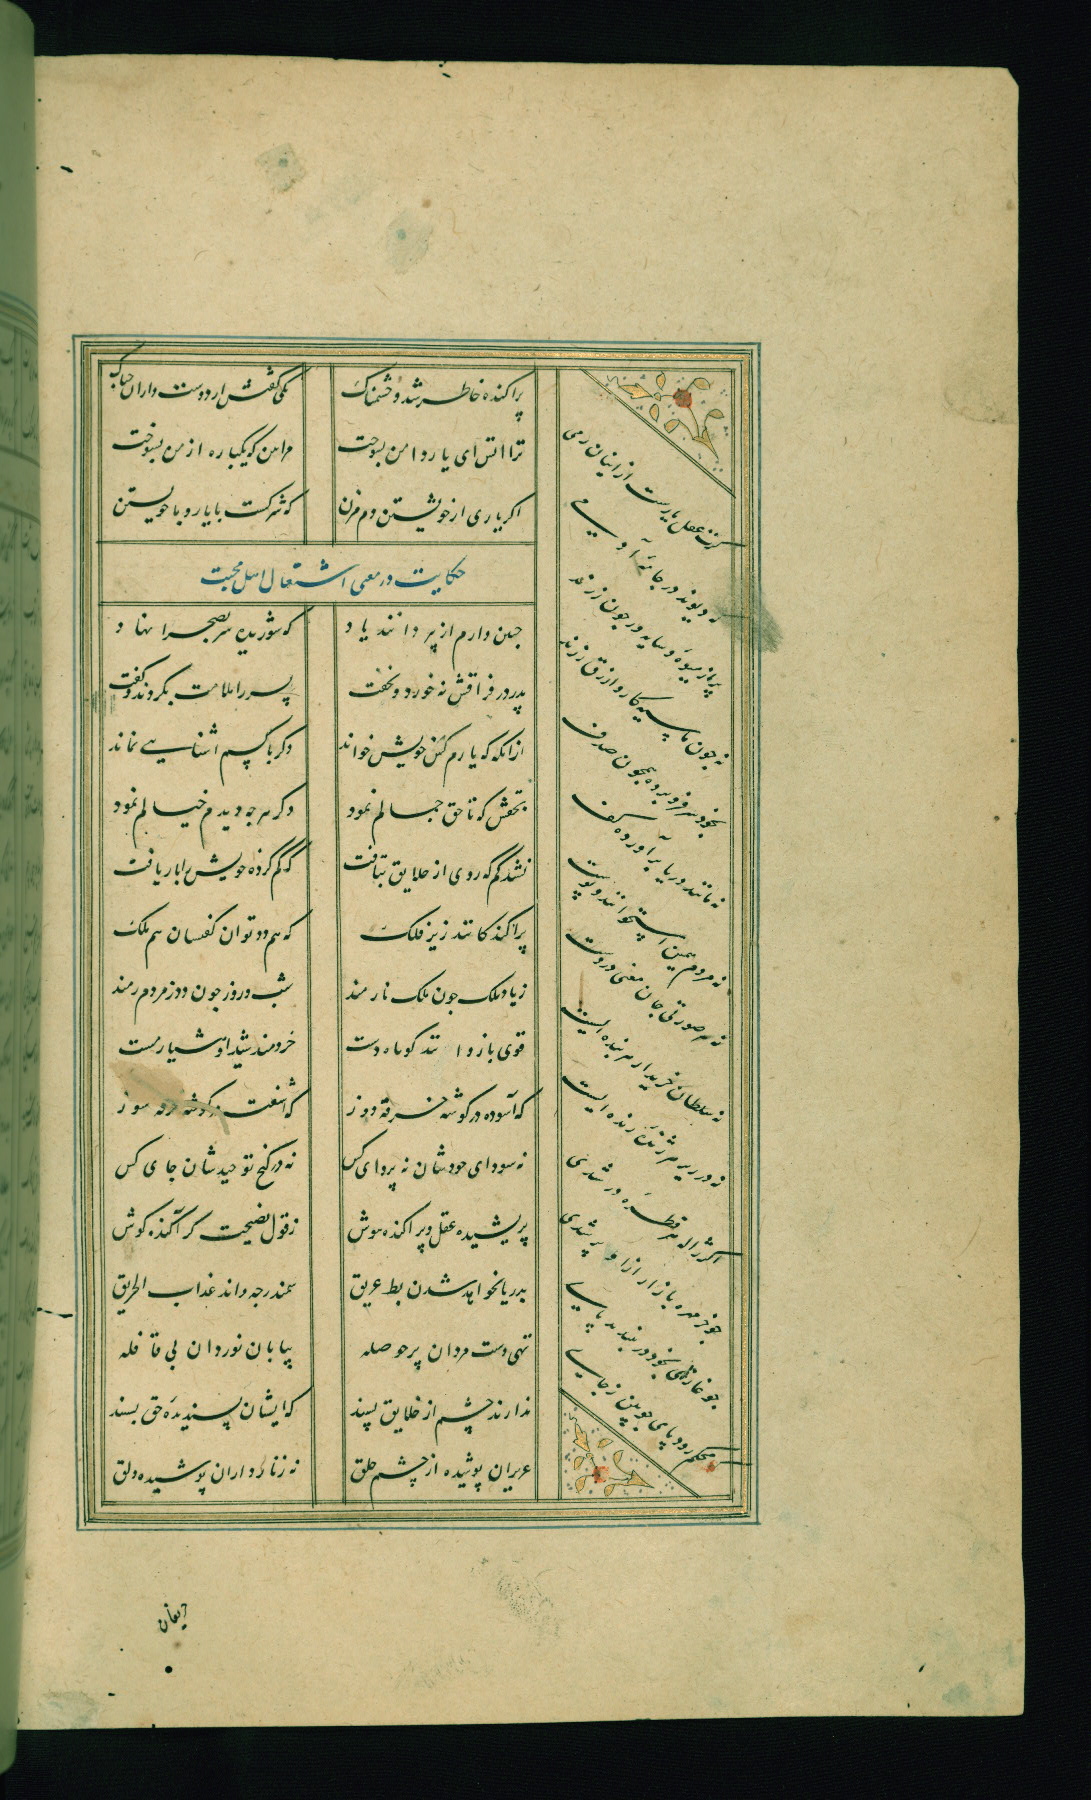 پراکنده خاطر شد و خشمناک	یکی گفتش از دوست داران چه باک
ترا اتش ای یار دامن بسوخت	مرا بین که یکباره از من بسوخت
اکر یاری از خویشتن دم مزن	که شرکست با یار و با خویشتن
حکایت در معنی اشتغال اهل محبت
جنین دارم از پیر داننده یاد	که شوریده سر بصحرا نهاد
پدر در فراقش نه خورد و نخفت	پسر را ملامت بکردند و کفت
ازانکه که یارم کس خویش خواند	دکر با کسم اشنایی نماند
بحقش که تا حق جمالم نمود	دکر هرجه دیدم خیالم نمود
نشد کم که روی از خلایق بتافت	که کم کرده خویش را باز یافت
پراکندکانند زیر فلک	که هم دد توان کفتشان هم ملک
ز یاد ملک جون ملک نارمند	شب و روز جون دد ز مردم رمند
قوی بازوانند کوتاه دست	خردمند شیدا و هشیار مست
که آسوده در کوشه خرقه دوز	که آشفته در کوشه خرقه سوز
نه سودای خودشان نه پروای کس	نه در کنج توحیدشان جای کس
پریشیده عقل و پراکنده هوش	ز قول نصیحت کر آکنده کوش
بدریا نخواهد شدن بط غریق	سمندر جه داند عذاب الحریق
تهی دست مردان پر حوصله	بیابان نوردان بی قافله
ندارند چشم از خلایق پسند	که ایشان پسندیده حق بسند
عزیزان پوشیده از چشم خلق	نه زنار داران پوشیده دلق
کرت عقل یارست ازانیان رمی
نه دیوند در جامه آدمی
پر از میوه و سایه ور جون رزند
نه جون ما سیه کار و ازرق رزند
بخود سر فرو برده همچون صدف
نه مانند دریا برآورده کف
نه مردم همین استخوانند و پوست
نه هر صورتی جان معنی دروست
نه سلطان خریدار هر بنده ایست
نه در زیر هر ژنده زنده ایست
اکر ژاله هر قطره در شدی
جو خرمهره بازار ازو پر شدی
جو غازی بخود در نبندند پای
که محکم رود پای چوبین ز جای